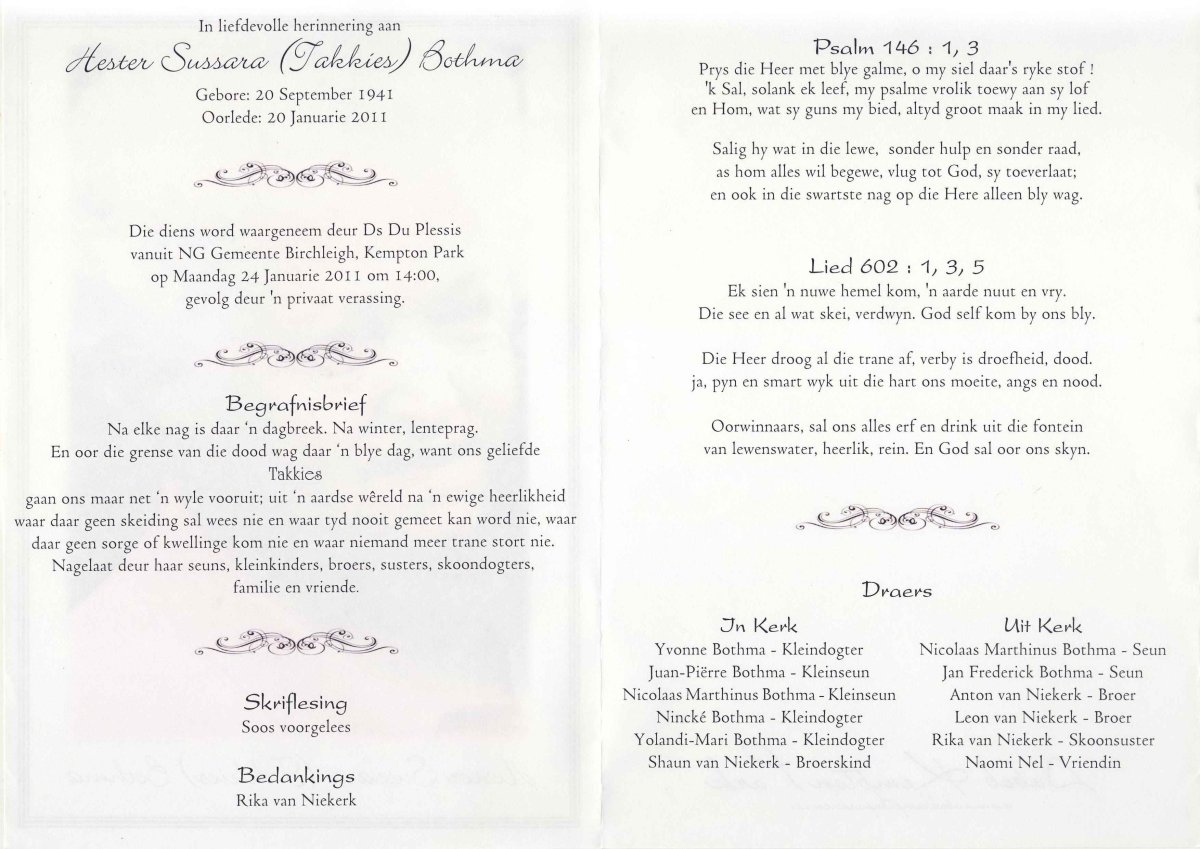 In liefdevolle herinnering aan
Hester Sussara (Takkies) Bothma
Gebore: 20 September 1941
Oorlede: 20 Januarie 2011
Die diens word waargeneem deur Ds Du Plessis
vanuit NG Gemeente Birchleigh, Kempton Park
op Maandag 24 Januarie 2011 om 14:00,
gevolg deur 'n privaat verassing.
Begrafnisbrief
Na elke nag is daar ‘n dagbreek. Na winter, lenteprag.
En oor die grense van die dood wag daar ‘n blye dag, want ons geliefde
Takkies
gaan ons maar net ‘n wyle vooruit; uit ‘n aardse wêreld na ‘n ewige heerlikheid
waar daar geen skeiding sal wees nie en waar tyd nooit gemeet kan word nie, waar
daar geen sorge of kwellinge kom nie en waar niemand meer trane stort nie.
Nagelaat deur haar seuns, kleinkinders, broers, susters, skoondogters,
familie en vriende.
Skriflesing
Soos voorgelees
Bedankings
Rika van Niekerk
Psalm 146 : 1, 3
Prys die Heer met blye galme, o my siel daar's ryke stof !
'k Sal, solank ek leef, my psalme vrolik toewy aan sy lof
en Hom, wat sy guns my bied, altyd groot maak in my lied.
Salig hy wat in die lewe, sonder hulp en sonder raad,
as hom alles wil begewe, vlug tot God, sy toeverlaat;
en ook in die swartste nag op die Here alleen bly wag.
Lied 602 : 1, 3, 5
Ek sien 'n nuwe hemel kom, 'n aarde nuut en vry.
Die see en al wat skei, verdwyn. God self kom by ons bly.
Die Heer droog al die trane af, verby is droefheid, dood.
ja, pyn en smart wyk uit die hart ons moeite, angs en nood.
Oorwinnaars, sal ons alles erf en drink uit die fontein
van lewenswater, heerlik, rein. En God sal oor ons skyn.
Draers
In Kerk
Yvonne Bothma - Kleindogter
Juan-Piërre Bothma - Kleinseun
Nicolaas Marthinus Bothma - Kleinseun
Nincké Bothma - Kleindogter
Yolandi-Mari Bothma - Kleindogter
Shaun van Niekerk - Broerskind
Uit Kerk
Nicolaas Marthinus Bothma - Seun
Jan Frederick Bothma - Seun
Anton van Niekerk - Broer
Leon van Niekerk - Broer
Rika van Niekerk - Skoonsuster
Naomi Nel - Vriendin